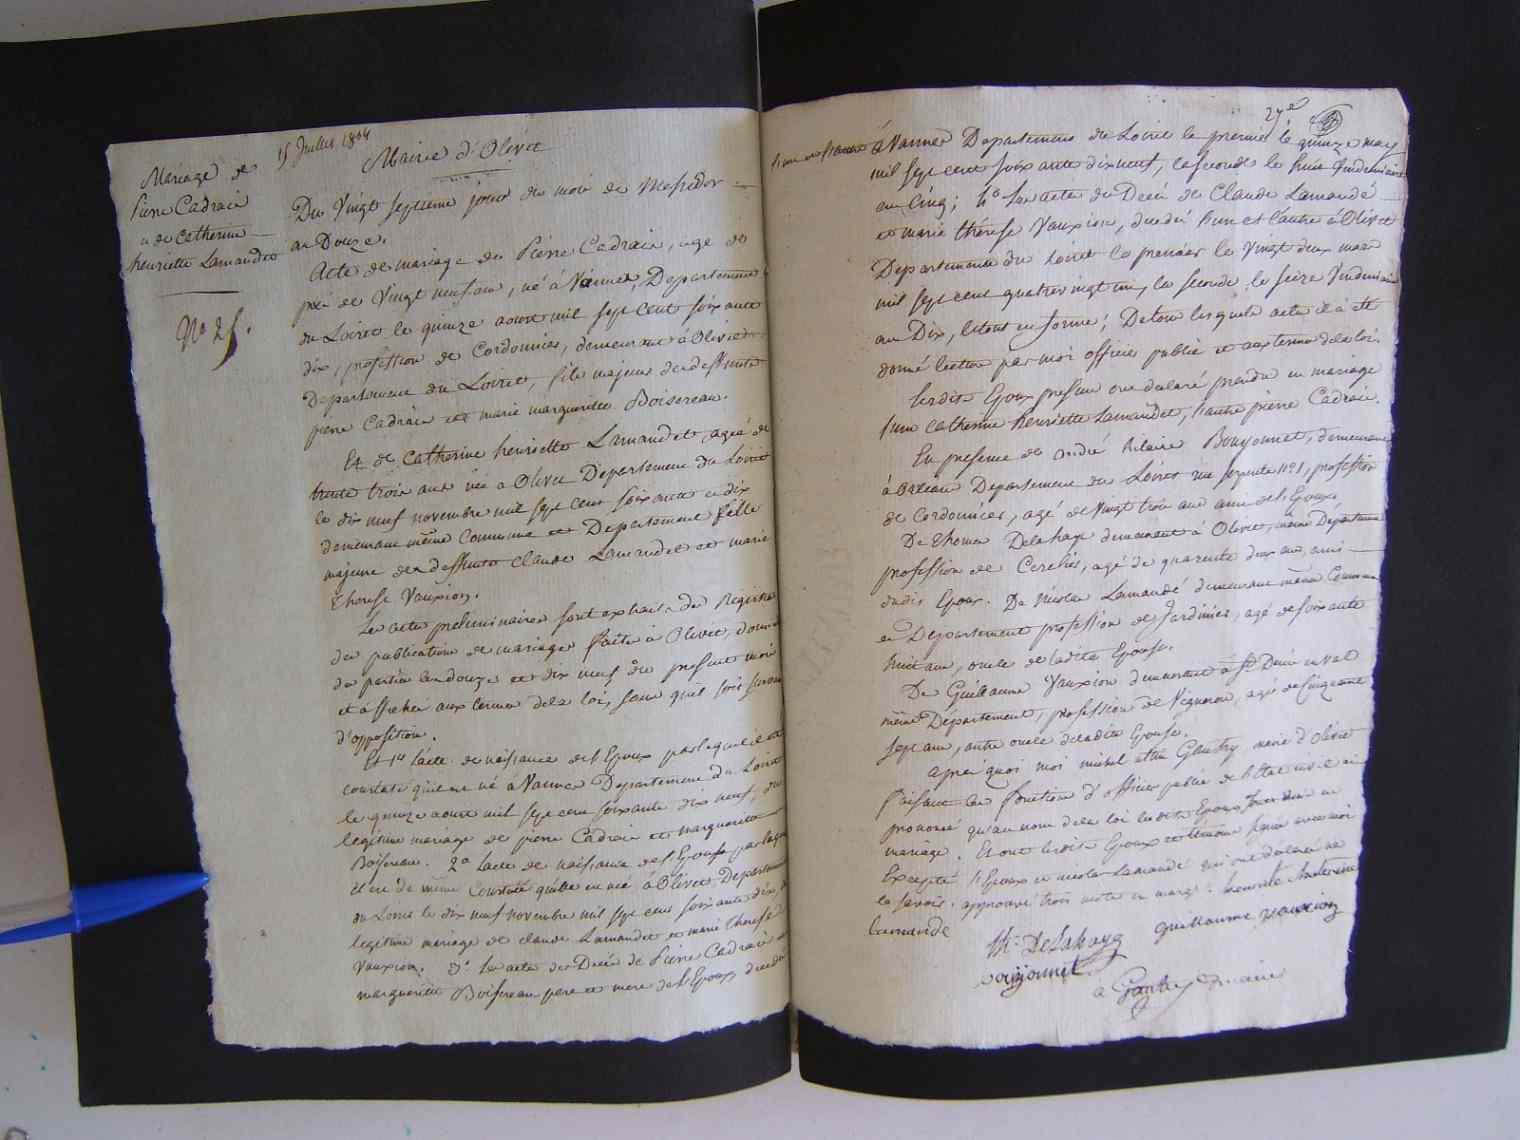 15 Juillet 1804
Mairie d'Olivet
Mariage de
Pierre Cadrain
et de Catherine
henriette Lamandet
No 25.
Du Vingt septieme jour du mois de Messidor
an Douze.
Acte de mariage de Pierre Cadrain, agé de
près de Vingt neuf ans, né à Vannes, Departement
du Loiret le quinze aoust mil sept cent soixante
dix, profession de Cordonnier, demeurant à Olivet
Departement du Loiret, fils majeur de deffunts
pierre Cadrain et marie marguerite Boisereau.
Et de Catherine henriette Lamandet, agée de
trente trois ans née a Olivet Departement du Loiret
le dix neuf novembre mil sept cent soixante et dix
demeurant même Commune et Departement fille
majeure de deffunts Claude Lamandet et marie
Therese Vauxion.
Les actes preliminaires sont extraits du Registre
des publications de mariages faits à Olivet, dom
des parties les douze et dix neuf du present mois
et affichés aux termes de la loi, sans qu'il soit survenu
d'opposition.
Et 1er l'acte de naissance de l'Epoux par lequel il est
constaté qu'il est né à Vannes Departement du Loiret
le quinze aoust mil sept cent soixante dix neuf, du
legitime mariage de pierre Cadrain et marguerite
Boisereau. 2o l'acte de naissance de l'Epouse par lequel
il est de même Constaté qu'elle est née à Olivet Departement
du Loiret le dix neuf novembre mil sept cent soixante dix, du
legitime mariage de claude Lamandet et marie therese
Vauxion. 3o les actes de Décès de Pierre Cadrain et
marguerite Boisereau pere et mere de l'Epoux, decedés
27e
l'un et l'autre à Vannes Departement du Loiret le premier le quinze may
mil sept cent soixante dix neuf, la seconde le huit Vendemiaire
an Cinq; 4o les actes de Décès de Claude Lamandé
et marie thérese Vauxion, decedés l'un et l'autre à Olivet
Departement du Loiret le premier le Vingt deux mars
mil sept cent quatre vingt un, la seconde le seize Vendemiaire
an Dix, le tout en forme; De tous lesquels actes il a été
donné lecture par moi officier public et aux termes de la loi.
Lesdits Epoux presens ont declaré prendre en mariage
l'une catherine henriette Lamandet, l'autre pierre Cadrain.
En presence de andré hilaire Bouyonnet, demeurant
à Orléans Departement du Loiret rue no 1, profession
de Cordonnier, agé de Vingt trois ans ami de l'Epoux
De Thomas Delahaye demeurant à Olivet, même Département
profession de Cerclier, agé de quarente deux ans, ami
dudit Epoux. De Nicolas Lamandé demeurant même Commune
et Departement profession de Jardinier, agé de soixante
huit ans, oncle de ladite Epouse.
De Guillaume Vauxion demeurant à St Denis en Val
même Département, profession de Vigneron, agé de cinquante
sept ans, autre oncle de ladite Epouse.
après quoi moi michel Gautry maire d'Olivet
faisant les fonctions d'officier public de l'Etat civil ai
prononcé qu'au nom de la loi lesdits Epoux sont unis en
mariage. Et ont lesdits Epoux et témoins signé avec moi
Excepté l'Epoux et nicolas Lamandé qui ont declaré ne
le savoir. approuvé trois mots en marge. henriette Catherine
Lamandé
th: Delahaye guillaume vauxion
bouyonnet
Gautry maire